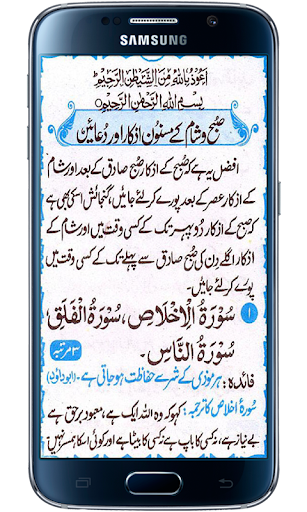 SAMSUNG
اَعُوْذُ بِاللهِ مِنَ الشَّيْطٰنِ الرَّجِيْمِ
بِسْمِ اللهِ الرَّحْمٰنِ الرَّحِيْمِ
صبح و شام کے مسنون اذکار اور دُعائیں
افضل یہ ہے کہ صُبح کے اذکار صُبح صادق کے بعد اور شام
کے اذکار عصر کے بعد پورے کر لئے جائیں، گنجائش اسکی بھی ہے
کہ صُبح کے اذکار دوپہر تک کے کسی وقت میں اور شام کے
اذکار اگلے دِن کی صُبح صادق سے پہلے تک کے کسی وقت میں
پورے کر لئے جائیں۔
۱ سُوْرَةُ الْاِخْلَاصِ، سُوْرَةُ الْفَلَقِ
سُوْرَةُ النَّاسِ۔ ۳ مرتبہ
فائدہ: ہر موذی کے شر سے حفاظت ہوجاتی ہے۔ (ابوداؤد)
سُورۂ اخلاص کا ترجمہ: کہو کہ وہ اللہ ایک ہے، معبود برحق ہے
بے نیاز ہے، نہ کسی کا باپ ہے نہ کسی کا بیٹا ہے اور کوئی اسکا ہمسر نہیں